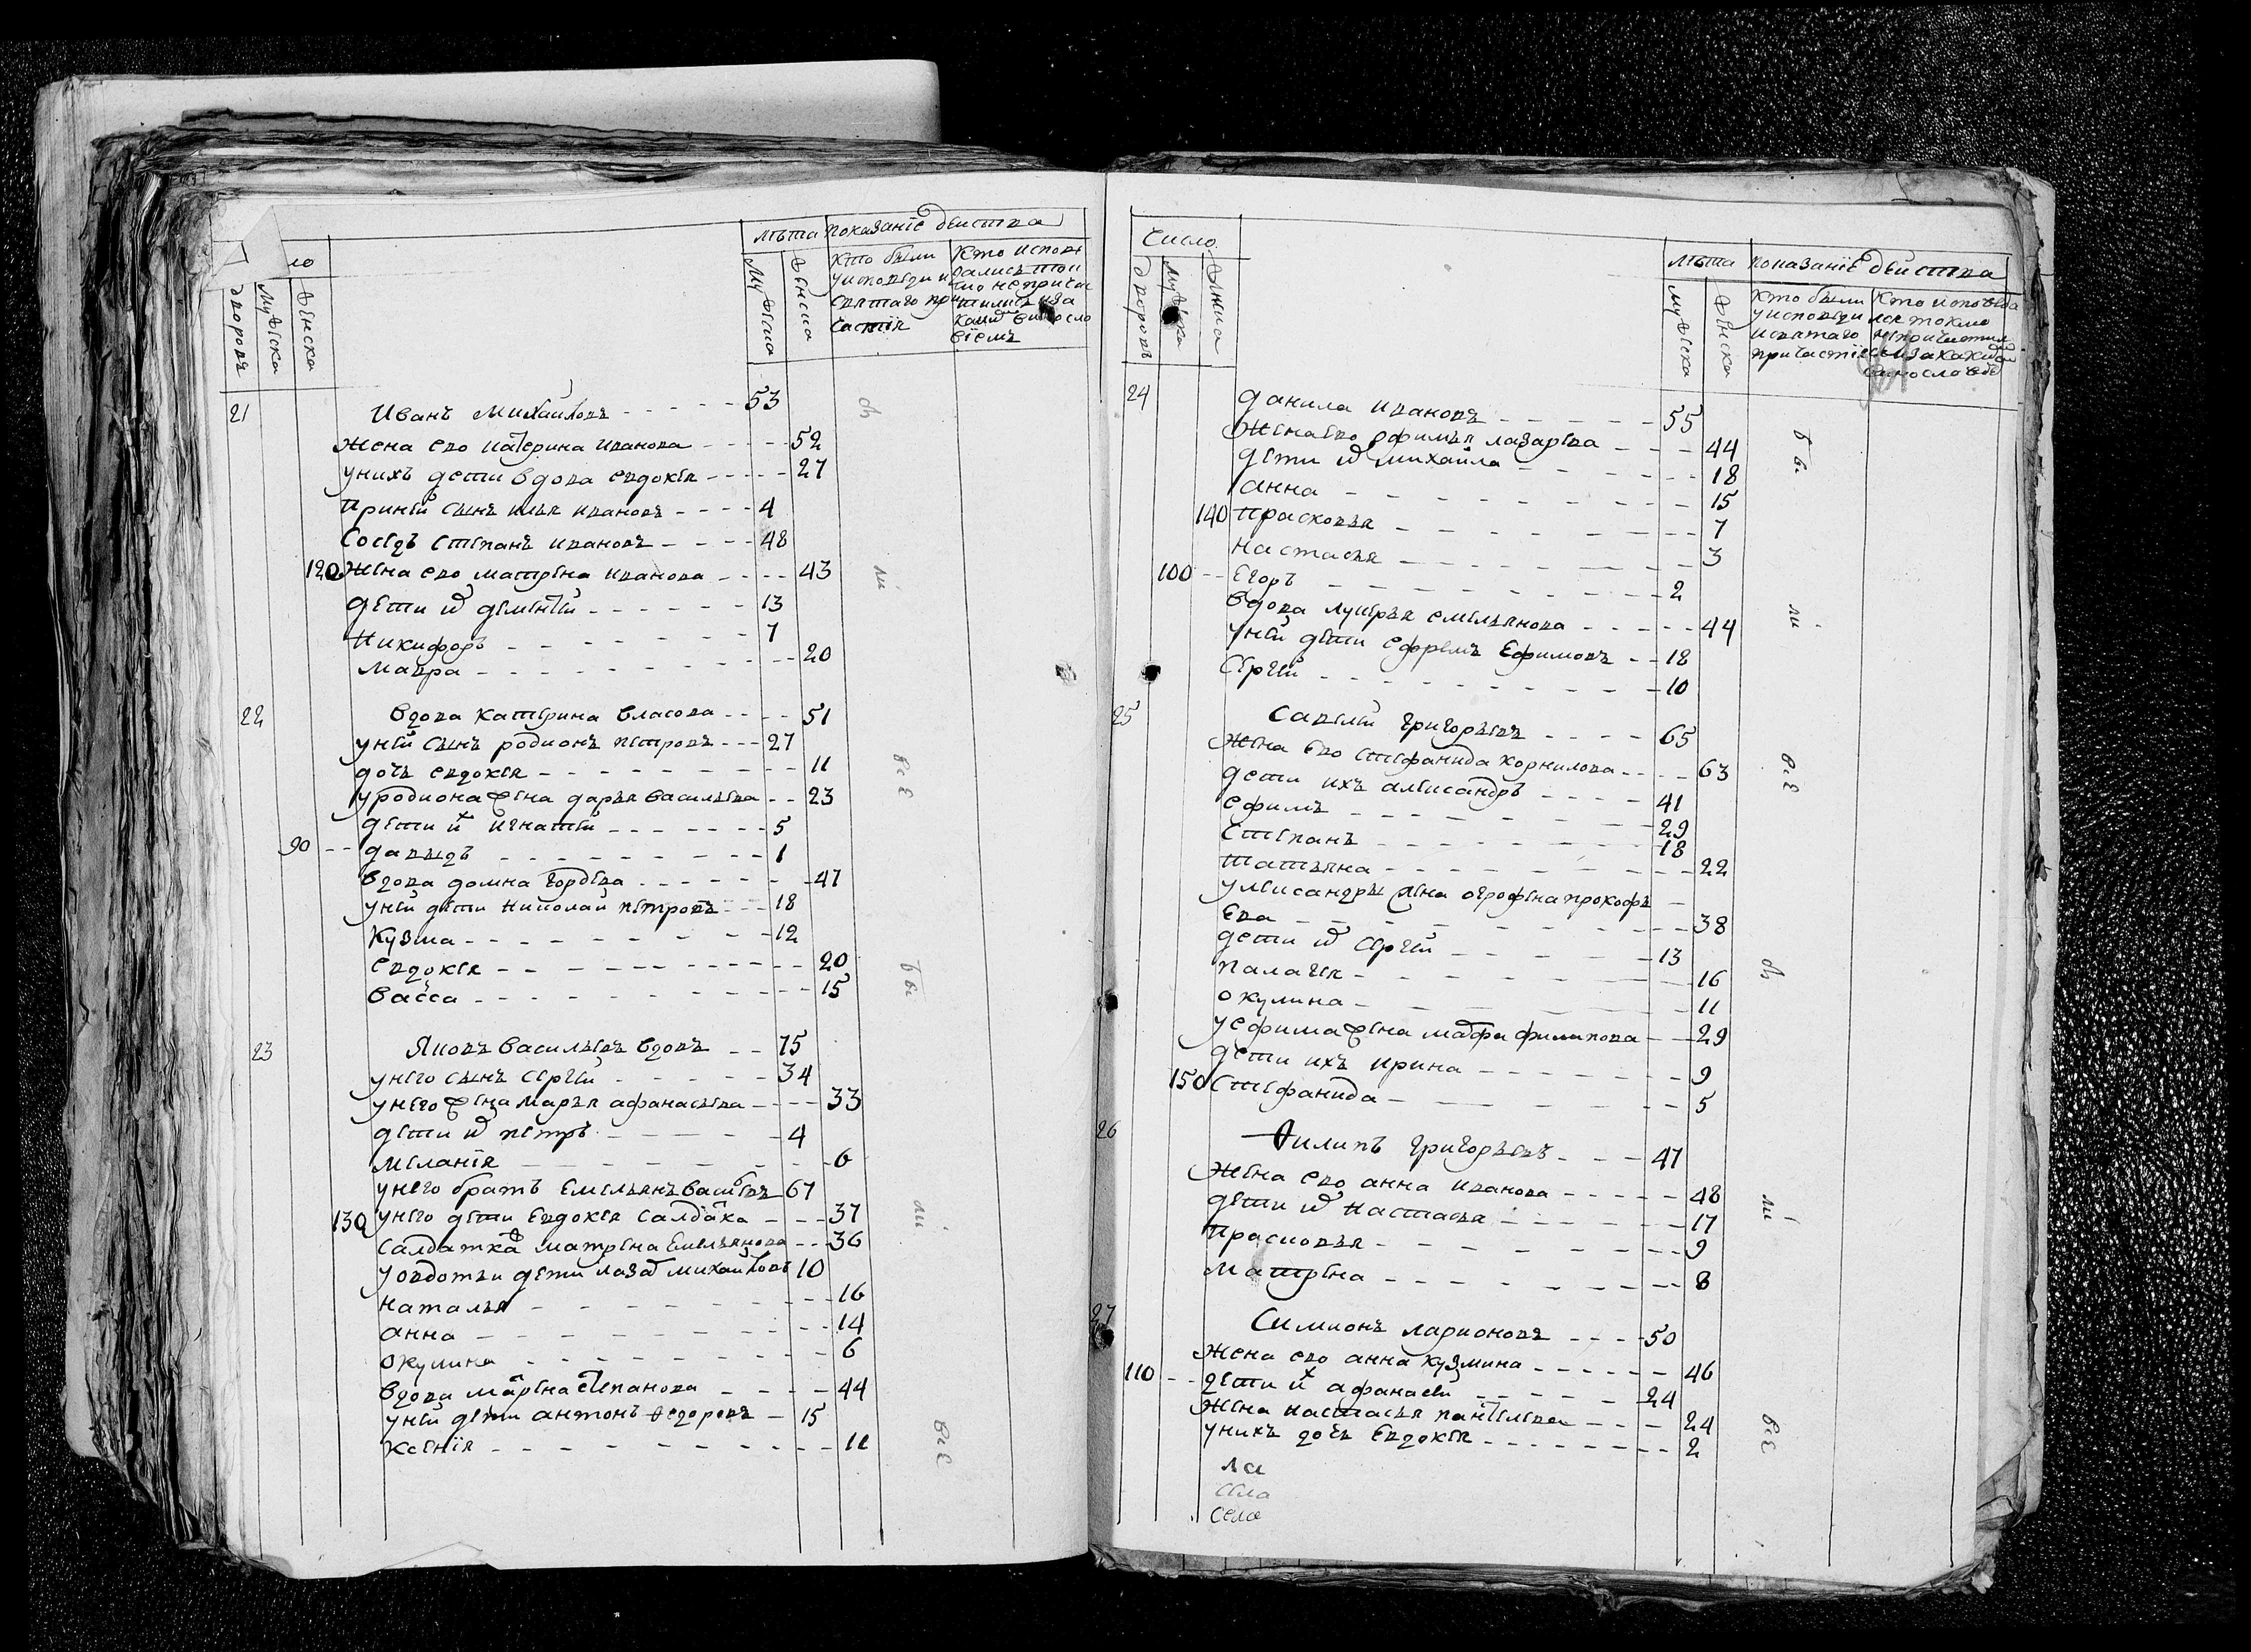 ло
лѣта показание действа
дворовъ
мужеска
женска
мужеска
женска
кто были
у исповеди и
святаго при
частия
Кто испове
дались тои
ко не причас
тились и за
каим винасло
виемъ
21 Иванъ Михаиловъ - - - - - 53
Жена ево Катерина Иванова - - - - 52
у нихъ дети вдова Евдокея - - - - 27
Приней сынъ Илья Ивановъ - - - - 4
Соседъ Степанъ Ивановъ - - - - 48
120 Жена ево Матрена Иванова - - - - 43
дети их Дементей - - - - - - 13
Никифоръ - - - - - - 7
Мавра - - - - - - - - - 20
22 Вдова Катерина Власова - - - - 51
у ней сынъ Родионъ Петровъ - - - 27
дочь Евдокея - - - - - - - - - 11
у Родиона жена Дарья Васильева - - 23
дети их Игнатей - - - - - - - 5
90 - - Давыдъ - - - - - - - - - 1
Вдова Домна Гордева - - - - - - - 47
у ней дети Николай Петровъ - - - 18
Кузма - - - - - - - - 12
Евдокея - - - - - - - - - - - 20
Васса - - - - - - - - - - 15
23 Яковъ Васильевъ вдовъ - - 75
у него сынъ Сергей - - - - - - 34
у него жена Марья Афанасьева - - - - 33
дети их Петръ - - - - - - 4
Мелания - - - - - - - - - 6
у него братъ Емельянъ Василевъ 67
130 у него дети Евдокея салдатка - - - 37
Салдатка Матрена Емельянова - - - 36
у овдотьи дети Лазар Михаиловъ 10
Наталья - - - - - - - - - - 16
Анна - - - - - - - - - - 14
Окулина - - - - - - - - - - 6
Вдова Марена Степанова - - - - 44
у ней дети Антонъ Ѳедоровъ - 15
Ксения - - - - - - - - - - 11
Число
дворовъ
мужеска
женска
лѣта показание действа
мужеска
женска
Кто были
у исповеди
и святаго
причастие
Кто исповеда
лся токмо
не причастил
24 Данила Ивановъ - - - - - - 55
Жена ево Ефимья Лазарева - - - - 44
дети их Михаила - - - - - - - 18
Анна - - - - - - - - - - 15
140 Прасковья - - - - - - - - 7
Настасья - - - - - - - - - 3
100 - - Егоръ - - - - - - - - - 2
Вдова Лукерья Емельянова - - - - - 44
у ней дети Ефремъ Ефимовъ - - 18
Сергей - - - - - - - - - - 10
25 Савелей Григорьевъ - - - - 65
Жена ево Стефанида Корнилова - - - - 63
дети ихъ Александръ - - - - 41
Ефимъ - - - - - - - - - 29
Степанъ - - - - - - - - 18
Татьяна - - - - - - - - - 22
у Лександры жена Огрофена Прокофь -
ева - - - - - - - - - - - 38
дети их Сергей - - - - - - 13
Палагея - - - - - - - - 16
Окулина - - - - - - - - 11
у Ефима жена Марфа Филипова - - 29
дети ихъ Ирина - - - - - - - 9
150 Стефанида - - - - - - - 5
26 Ѳилипъ Григорьевъ - - - 47
Жена ево Анна Иванова - - - - - 48
дети их Настасья - - - - - - 17
Прасковья - - - - - - - - 9
Матрена - - - - - - - - - 8
27 Симионъ Ларионовъ - - - - 50
Жена ево Анна Кузмина - - - - - - 46
110 - - дети их Афанасей - - - - - 24
Жена Настасья Пантелева - - - - 24
у нихъ дочь Евдокея - - - - - - - 2
ла
села
села